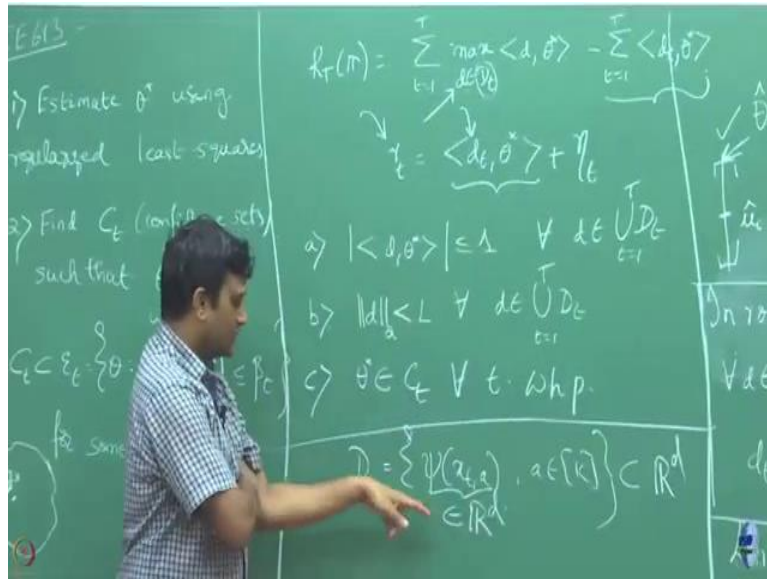 E613
1) Estimate θ* using
regularized least-squares
2) Find C_t (confi
such that
C_t ⊂ ε_t = {θ
≤ β_t
for some
R_T(π) = Σ_{t=1}^{T} max_{d∈D_t} <d, θ*> - Σ_{t=1}^{T} <d_t, θ*>
r_t = <d_t, θ*> + η_t
a) |<d, θ*>| ≤ 1 ∀ d∈ ⋃_{t=1}^{T} D_t
b) ||d||_2 < L ∀ d∈ ⋃_{t=1}^{T} D_t
c) θ* ∈ C_t ∀ t. whp.
= {ψ(x_t,a), a∈[K]} ⊂ ℝ^d
∈ℝ^d
θ̂
In ro
∀ d∈
d_t